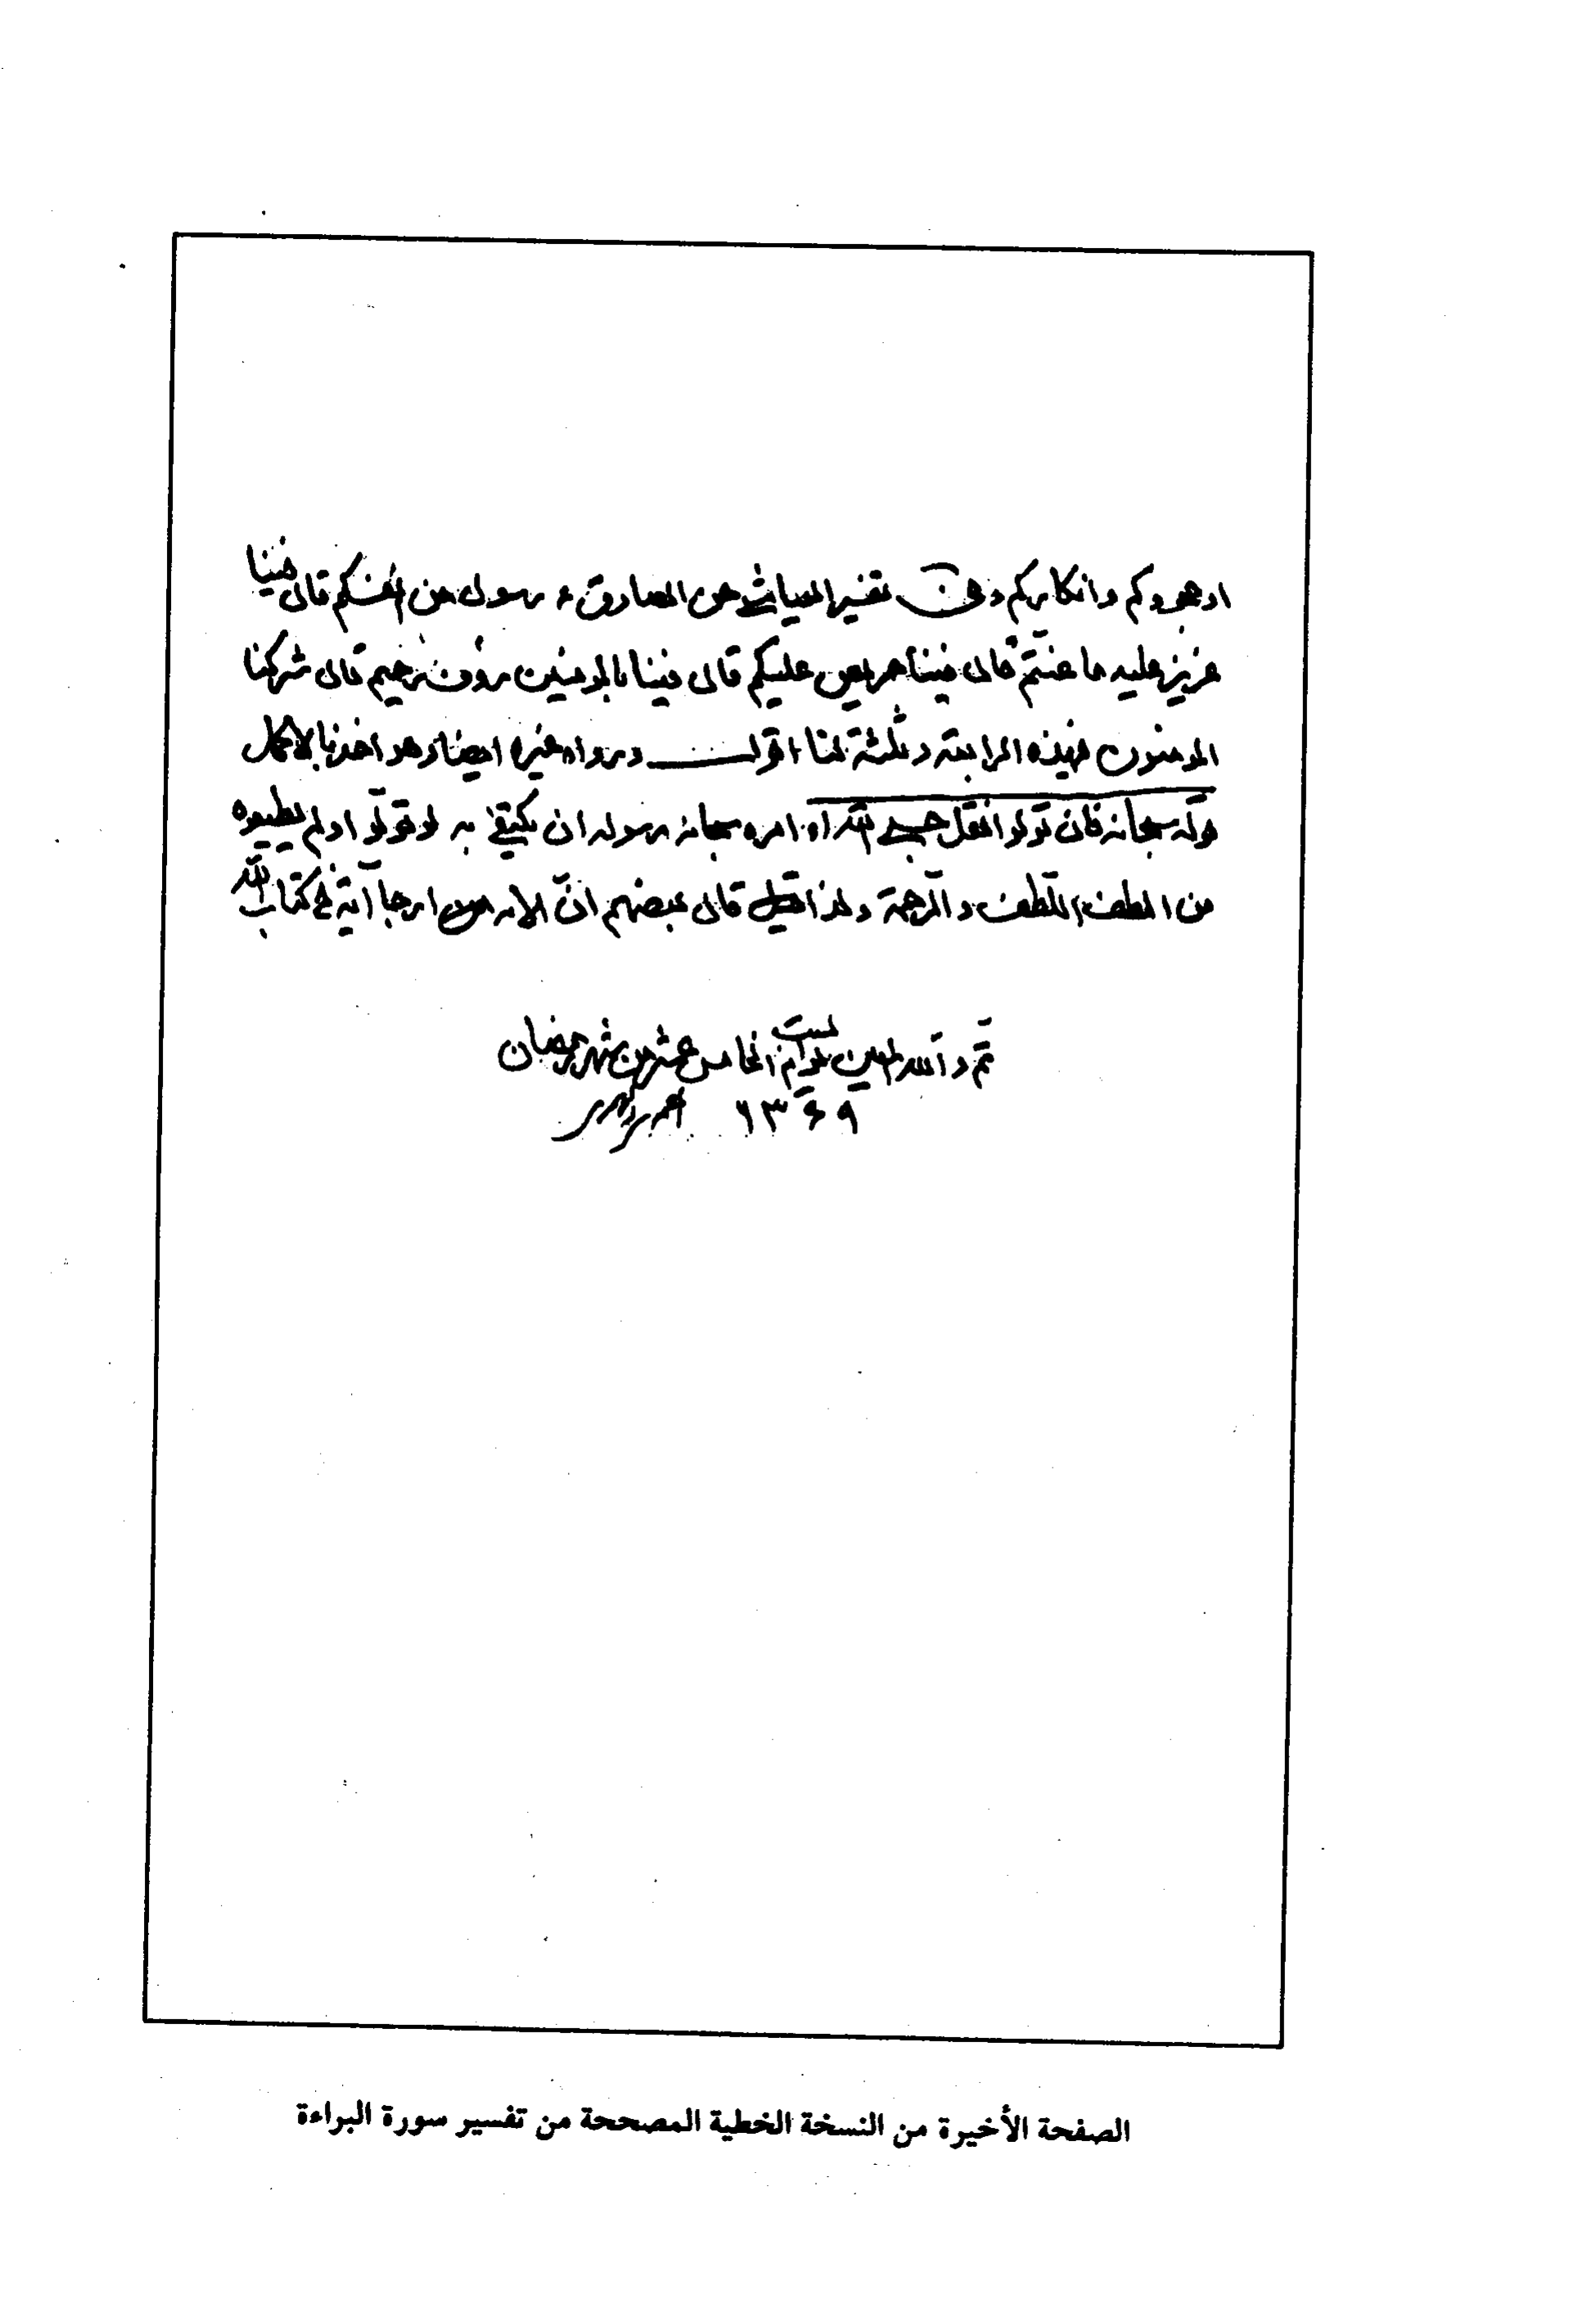 او جحودكم وانكاركم وعن تفسير العياشي عن الصادق ع رسول من انفسكم قال فينا
عزيز عليه ما عنتم قال فينا حريص عليكم قال فينا بالمومنين رؤف رحيم قال شركنا
المومنون فهذه الرابعة وثلثة لنا اقول ورواه غيره ايضا وهو اخذ بالاكمل
قوله سبحانه فان تولوا فقل حسبي الله اه امره سبحانه رسوله ان يكتفي به لو تولّوا ولم يطيعوه
من اللطف والرحمة ولذا قال بعضهم انّ ارجا آية في كتاب الله
تمّ والله المعين الخامس عشر من شهر رمضان
١٣٤٩
الصفحة الأخيرة من النسخة الخطية المصححة من تفسير سورة البراءة